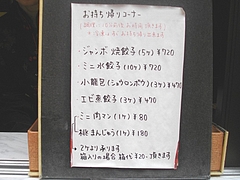 お持ち帰りコーナー
・ジャンボ焼餃子(5ヶ)¥720
・ミニ水餃子(10ヶ)¥720
・小籠包(ショウロンポウ)(3ヶ)¥470
・エビ蒸餃子(3ヶ)¥470
・ミニ肉マン(1ヶ)¥80
・桃まんじゅう(1ヶ)¥180
・2ケより承ります
箱入りの場合 箱代¥20-頂きます